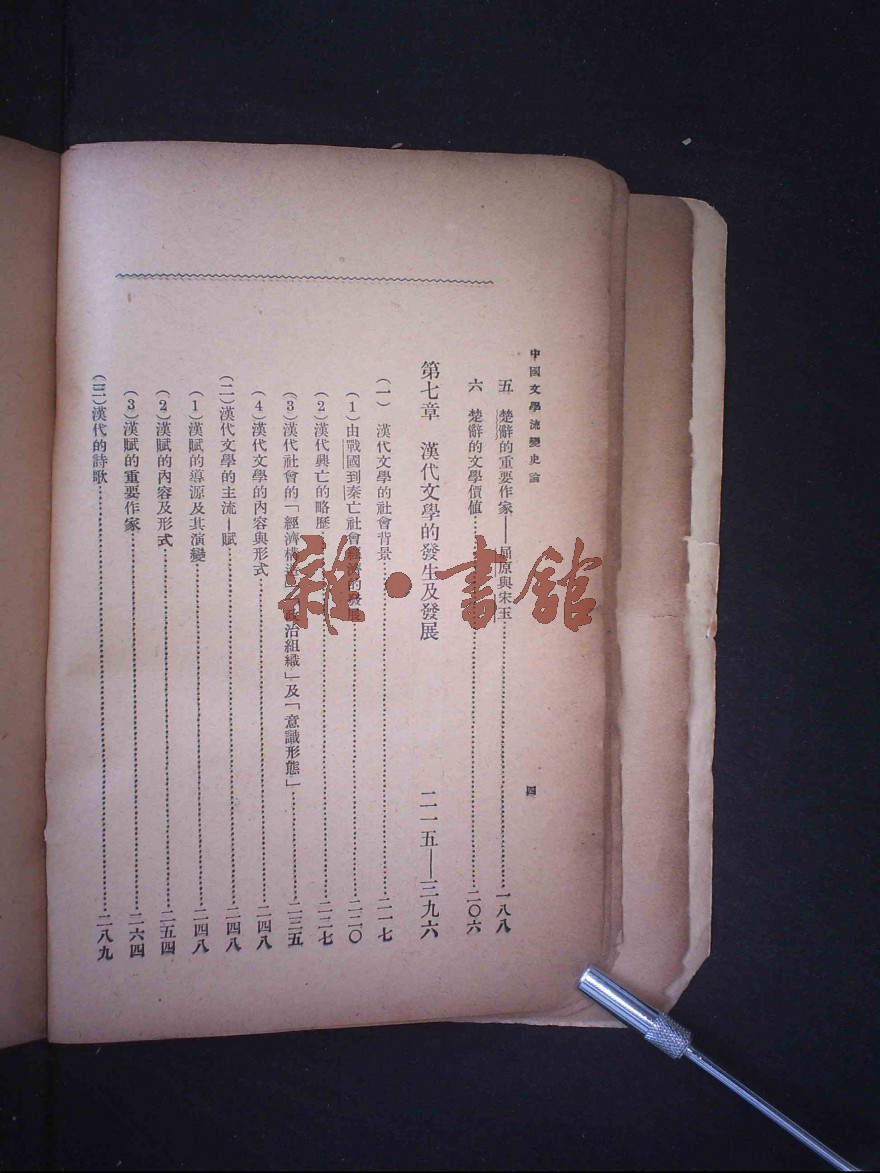 中國文學流變史論
四
五 楚辭的重要作家——屈原與宋玉……一八八
六 楚辭的文學價値……二〇六
第七章 漢代文學的發生及發展 二一五——三九六
(一) 漢代文學的社會背景……二一七
(1)由戰國到秦亡社會經濟的發展……二二〇
(2)漢代興亡的略歷……二二七
(3)漢代社會的「經濟構造」「政治組織」及「意識形態」……二三五
(4)漢代文學的內容與形式……二四八
(二)漢代文學的主流—賦……二四八
(1)漢賦的導源及其演變……二四八
(2)漢賦的內容及形式……二五四
(3)漢賦的重要作家……二六四
(三)漢代的詩歌……二八九
雜·書館